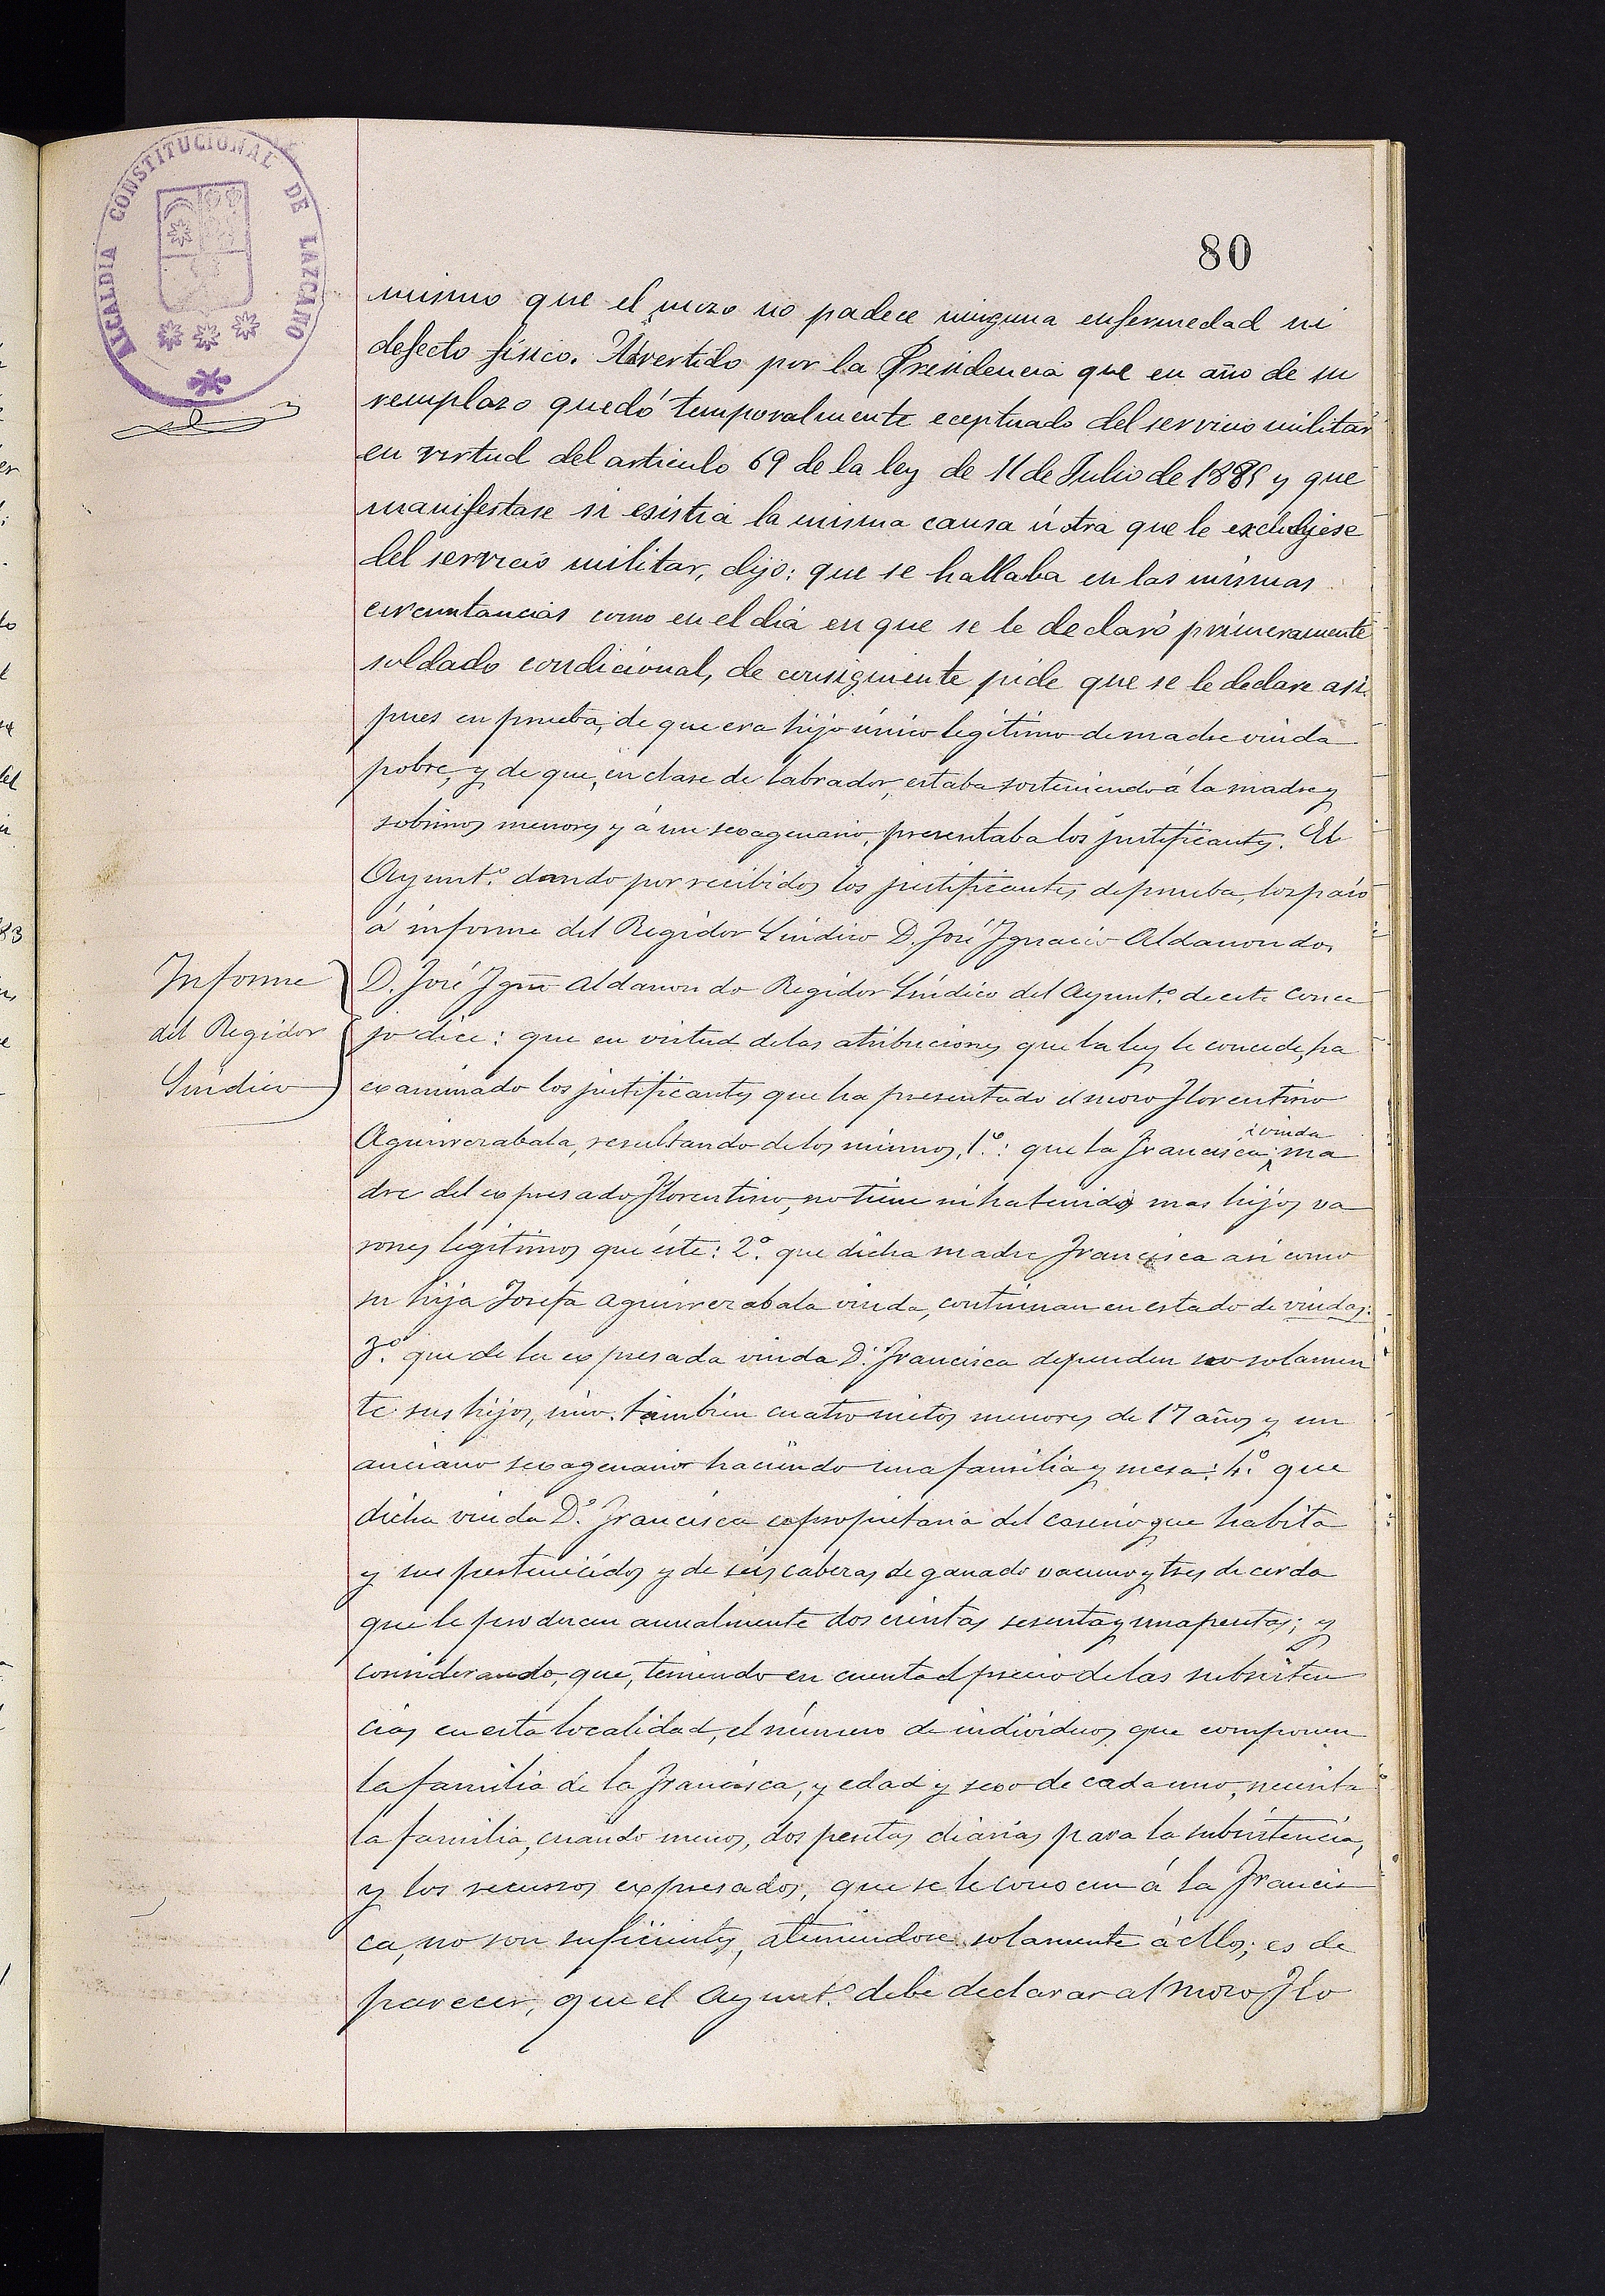 ALCALDIA CONSTITUCIONAL DE LAZCANO
80
mismo que el mozo no padece ninguna enfermedad ni
defecto físico. Advertido por la Presidencia que en año de su
remplazo quedó temporalmente eceptuado del servicio militar
en virtud del articulo 69 de la ley de 11 de Julio de 1885 y que
manifestase si esistia la misma causa ú otra que le excluyese
del servicio militar, dijo: que se hallaba en las mismas
circuntancias como en el dia en que se le declaró primeramente
soldado condicional, de consiguiente pide que se le declare asi.
pues en prueba, de que era hijo único legitimo de madre viuda
pobre, y de que, en clase de labrador, estaba sosteniendo á la madre y
sobrinos menores y á un sexagenario, presentaba los justificantes. El
Ayunt.º dando por recibidos los justificantes de prueba, los pasó
á informe del Regidor Sindico D. José Ignacio Aldanondo.
Informe
del Regidor
Sindico
D. José Ign.º Aldanondo Regidor Síndico del Ayunt.º de este Conce
jo dice: que en virtud de las atribuciones que la ley le concede, ha
examinado los justificantes que ha presentado el mozo Florentino
Aguirrezabala, resultando de los mismos, 1.º: que la Francisca, viuda ma
dre del expresado Florentino, no tiene ni ha tenido mas hijos va
rones legitimos que éste: 2.º que dicha madre Francisca asi como
su hija Josefa Aguirrezabala viuda, continuan en estado de viudas:
3.º que de la expresada viuda D.ª Francisca dependen no solamen
te sus hijos, sino también cuatro nietos menores de 17 años y un
anciano sexagenario haciendo una familia y mesa: 4.º que
dicha viuda D.ª Francisca es propietaria del caserio que habita
y sus pertenecidos y de seis cabezas de ganado vacuno y tres de cerda
que le producen anualmente doscientas sesenta y una pesetas; y
considerando, que, teniendo en cuenta el precio de las subsisten
cias en esta localidad, el número de individuos que componen
la familia de la Francisca, y edad y sexo de cada uno, necesita
la familia, cuando menos, dos pesetas diarias para la subsistencia,
y los recursos expresados, que se le conocen á la Francis
ca, no son suficientes, ateniendose solamente á ellos; es de
parecer, que el Ayunt.º debe declarar al mozo Flo